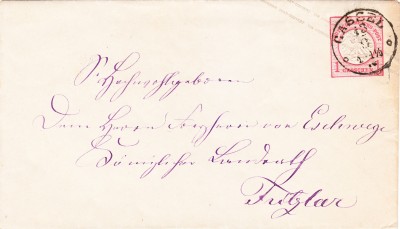 CASSEL
1
Sr Hochwohlgeboren
Dem Herrn Freyherrn von Eschwege
Königlicher Landrath
Fritzlar